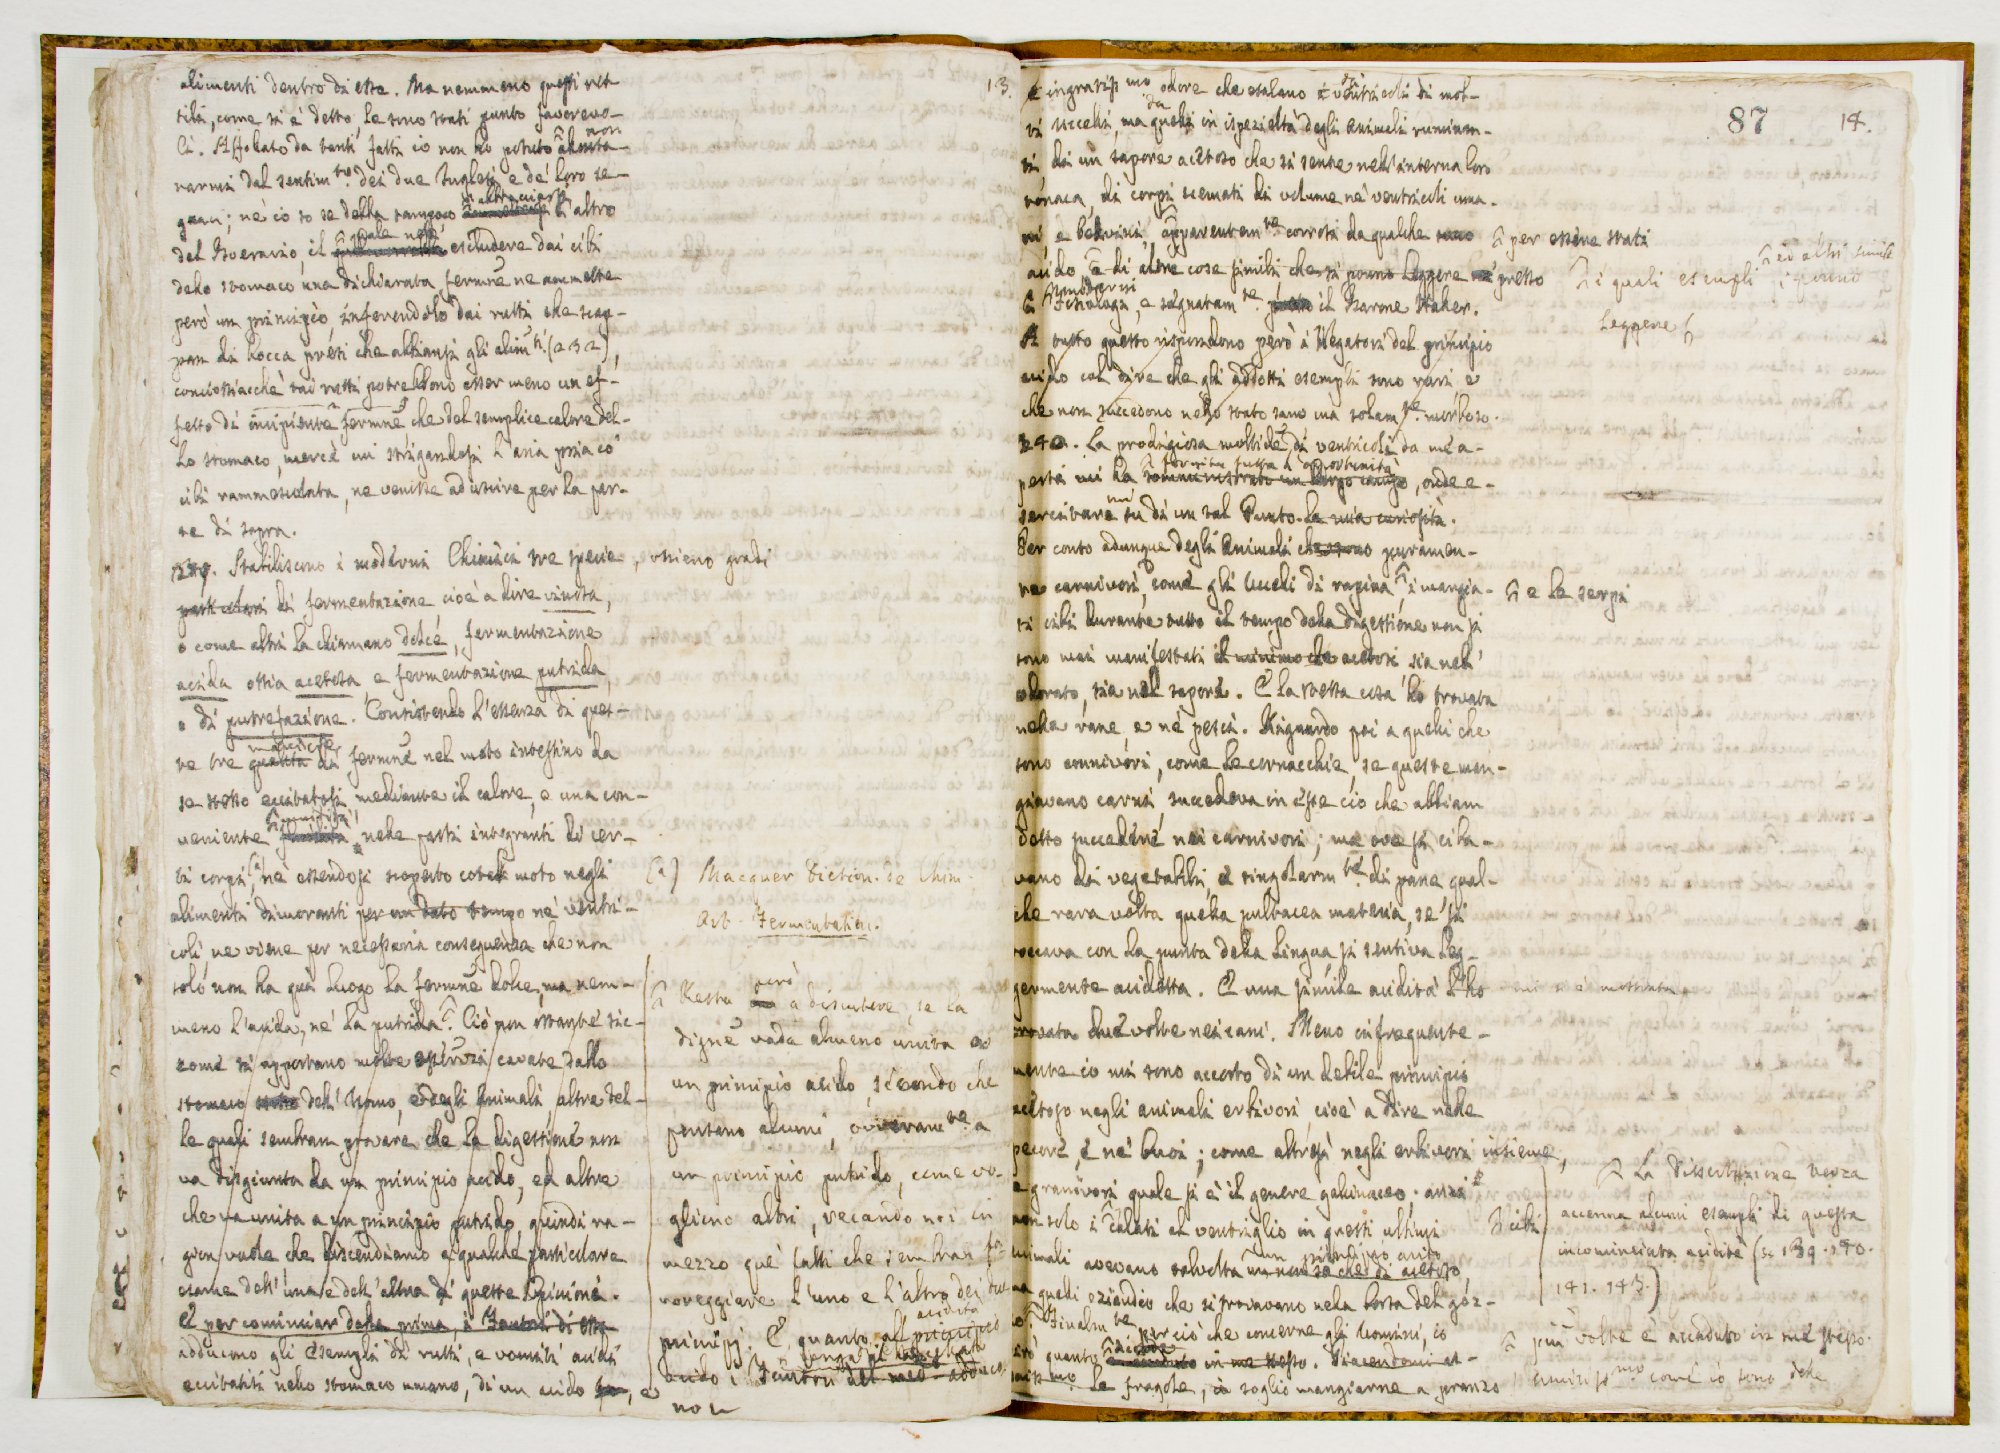 13.
alimenti dentro di essa. Ma nemmeno questi ret-
tili, come si è detto, le sono stati punto favorevo-
li. Affollato da tanti fatti io non ho potuto non
varmi dal sentim.to dei due Inglesi e de' loro se-
guaci; nè io so se della
l'altro
del Boeravio, il quale nell' escludere dai cibi
dello stomaco una dichiarata fermne ne ammette
però un principio, inferendolo dai rutti che scap-
pan di bocca presti che abbiansi gli alim.ti (232),
conciossiacchè tai rutti potrebbono esser meno un ef-
fetto di incipiente fermne che del semplice calore del-
lo stomaco, mercè cui strigandosi l'aria pria co'
cibi rammescolata, ne venisse ad uscire per la par-
te di sopra.
239. Stabiliscono i moderni Chimici tre specie, ossieno gradi
particolari di fermentazione cioè a dire vinosa,
o come altri la chiamano dolce, fermentazione
acida ossia acetosa e fermentazione putrida,
o di putrefazione. Consistendo l'essenza di ques-
te tre maniere
qualità di fermne nel moto intestino da
se stesso eccitatosi mediante il calore, e una con-
veniente umidità nelle parti integranti di cer-
ti corpi (a), nè essendosi scoperto cotesto moto negli
alimenti dimoranti per un dato tempo ne' ventri-
coli ne viene per necessaria conseguenza che non
solo non ha quà luogo la fermne dolce, ma nem-
meno l'acida, nè la putrida. Ciò non ostante sic-
come si apportano molte osservazni cavate dallo
stomaco dell' Uomo, e degli Animali, altre del-
le quali sembran provare che la digestione non
va disgiunta da un principio acido, ed altre
che va unita a un principio putrido, quindi ra-
gion vuole che discendiamo a qualche particolare
esame dell'una e dell'altra di queste Opinioni.
E per cominciar dalla prima, i Fautori di essa
adducono gli esempli di rutti, e vomiti acidi
eccitatisi nello stomaco umano, di un acido, e
(a) Macquer Diction. de Chim.
Art. Fermentation.
Resta però a discutere, se la
digne vada almeno unita a
un principio acido, secondo che
pensano alcuni, ovveram.te a
un principio putrido, come vo-
gliono altri, recando noi in
mezzo que' fatti che sembran fa-
voreggiare l'uno e l'altro dei due
principj. E quanto all' acidità
principio
acido i Fautori del med.
non
87
14.
e ingratiss.mo odore che esalano i ventricoli di mol-
ti uccelli, ma quelli in ispezieltà degli Animali ruminan-
ti, di un sapore acetoso che si sente nell'interna loro
tonaca, di corpi scemati di volume ne' ventricoli uma-
ni e bovini, apparentem.te corrosi da qualche
per essere stati
acido, e di altre cose simili che si ponno leggere presso
i quali esempli ed altri simili
i Fisiologi moderni, e segnatam.te il Barone Haller.
leggere
A tutto questo rispondono però i Negatori del principio
acido col dire che gli addotti esempli sono rari e
che non succedono nello stato sano ma solam.te morboso.
240. La prodigiosa moltitudne di ventricoli da me a-
perti mi ha fornita tutta l'opportunità
somministrato un largo campo, onde e-
sercitare su di un tal Punto la mia curiosità.
Per conto adunque degli Animali che sono puramen-
te carnivori, come gli Uccelli di rapina, i mangia-
e le serpi
ti cibi durante tutto il tempo della digestione non si
sono mai manifestati il minimo che acetosi sia nell'
odorato, sia nel sapore. E la stessa cosa ho trovata
nelle rane, e ne' pesci. Riguardo poi a quelli che
sono onnivori, come le cornacchie, se queste man-
giavano carni, succedeva in esse ciò che abbiam
detto succedere nei carnivori; ma ove si ciba-
vano di vegetabili, e singolarm.te di pane qual-
che rara volta quella pultacea materia, se si
toccava con la punta della lingua si sentiva leg-
germente acidetta. E una simile acidità l'ho
trovata due volte nei cani. Meno infrequente-
mente io mi sono accorto di un debile principio
acetoso negli animali erbivori cioè a dire nelle
pecore, e ne' buoi; come altresì negli erbivori insieme,
e granivori quale si è il genere gallinaceo; anzi
non solo i calati al ventriglio in questi ultimi
cibi
animali avevano talvolta un principio acido
un non so che di acetoso,
ma quelli eziandio che si trovavano nella borsa del goz-
zo. Finalm.te per ciò che concerne gli Uomini, io
in me stesso. Piacendomi as-
saiss.mo le fragole, io soglio mangiarne a pranzo
La Dissertazione terza
accenna alcuni esempli di questa
incominciata acidità (§. 139. 140.
141. 143.)
più volte è accaduto in me stesso.